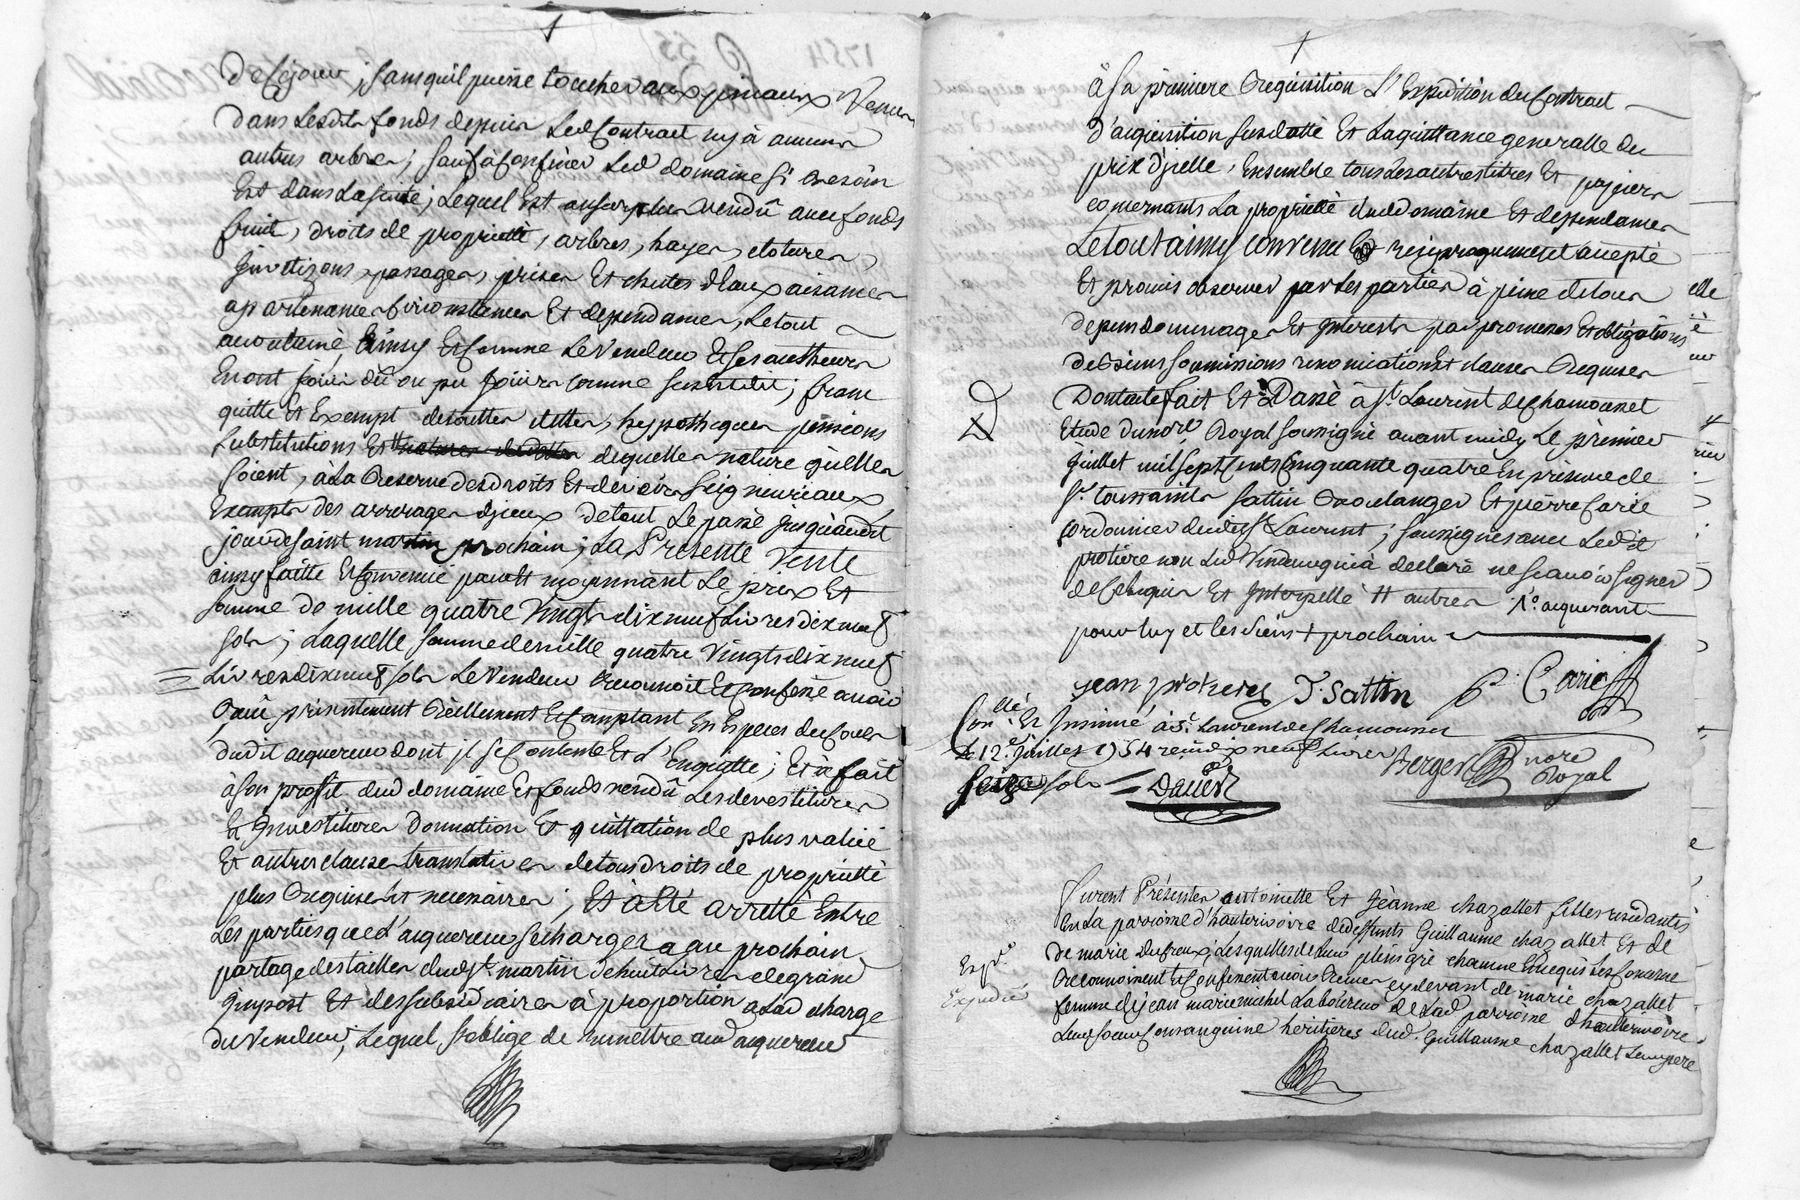 de sejour, sans quil puisse toucher aux
dans lesdits fonds depuis led Contract ny à aucuns
autres arbres; sauf à confiner led domaine si besoin
Est dans la suite; lequel Est au surplus vendû avec fonds
fruits, droits de proprietté, arbres, hayes, clotures,
passages, prises Et chutes d'Eaux aisances
apartenances circonstances Et dependances, le tout
accoutumé, Ainsy Et comme le Vendeur Et ses autheurs
En ont joüi dû ou pu joüir comme ; franc
quitte Et Exempt de touttes dettes, hypotheques pensions
substitutions Et de quelle nature qu'elles
soient, à la Reserve des droits Et devoirs seigneuriaux
Exempts des arrerages d'jceux de tout le passé jusqu'audit
jour de saint martin prochain; La Presente Vente
ainsy faitte Et Convenue moyennant Le prix Et
somme de mille quatre Vingts dix neuf Livres dix neuf
sols; Laquelle somme de mille quatre Vingts dix neuf
Livres dix neuf sols Le Vendeur Reconnoit Et confesse avoir
presentement Réellement Et Comptant En Especes du Cours
dudit acquereur dont jl se Contente Et L'Enquitte; Et à fait
à son proffit dud domaine Et fonds vendû Les devestitures
Et Jnvestitures Donnation Et quittation de plus valüe
Et autres clauses translatives de tous droits de proprietté
plus Requises Et necessaires; Et à Eté arretté Entre
Les parties que l'acquereur se chargera au prochain
partage des tailles dud St martin de huit Livres de grand
Jmpost Et des subsidiaires à proportion a La d charge
du Vendeur, Lequel s'oblige de Remettre aud acquereur
à sa premiere Requisition L'Expedition du Contract
d'acquisition susdatté Et La quittance generalle du
prix d'jcelle, Ensemble tous Les autres titres Et papiers
concernants La proprietté dud domaine Et dependances
Le tout ainsy convenu Et reciproquement accepté
Et promis observer par Les parties à peine de tous
depens dommages Et Jnterests par promesses Et obligations
de biens soumissions renonciations Et clauses Requises
Dont acte fait Et Passé à St. Laurent de Chamousset
Etude du nore. Royal soussigné avant midy Le premier
Juillet mil sept Cents Cinquante quatre En presence de
Sr. toussaints sattin Boulanger Et pierre Carié
Cordonnier dudit St Laurent; soussignés avec Ledit
protiere non Led Vendeur qui à declaré ne scavoir signer
de Ce Enquis Et Jnterpellé # autres 1o. acquerant
pour luy et les siens + prochain
jean protiere J. Sattin P. Carié
Conllé. Et Jnsinué, à St. Laurent de Chamousset
le 12e. Juillet 1754 reçu dix neuf Livres
seize sols
Berger nore
Royal
Furent Présentes antoinette Et Jeanne chazallet filles residantes
En La parroisse d'hauterivoire de deffunts Guillaume chazallet Et de
de marie Dufreux; Lesquelles de Leur plein gré chacune Ence qui Les Concerne
Reconnoissent Et Confessent avoir Receu cy devant de marie chazallet
femme de jean marie michel Laboureur de Lad parroisse d'hauterivoire
Leur soeur Consanguine heritieres dud. Guillaume chazallet Leur pere
Expé.
Expedié